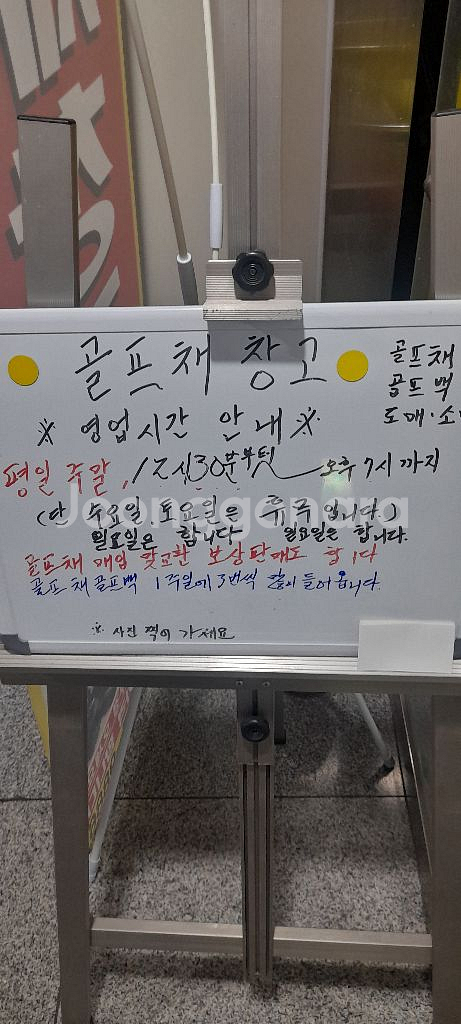 골프채 창고
골프채
골프백
도매·소
※ 영업시간 안내 ※
평일 주말, 12시30분부터 오후 7시까지
(단 수요일, 토요일은 휴무입니다)
일요일은 합니다 일요일은 합니다.
골프채 매입 맞교환 보상판매도 합니다
골프채 골프백 1주일에 3번씩 들어옵니다
※ 사진 찍어 가세요
Joonggonara